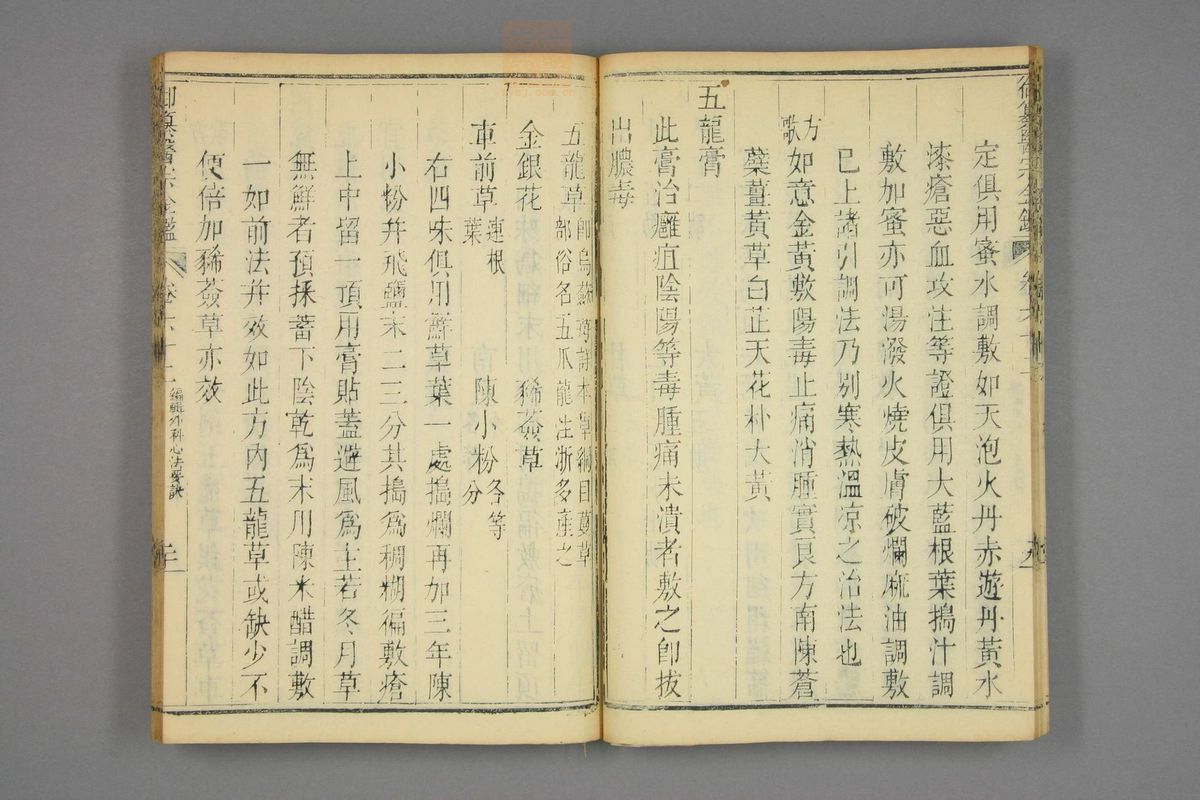 定俱用蜜水調敷如天泡火丹赤遊丹黃水
漆瘡惡血攻注等證俱用大藍根葉搗汁調
敷加蜜亦可湯潑火燒皮膚破爛麻油調敷
已上諸引調法乃別寒熱溫凉之治法也
方歌
如意金黃敷陽毒止痛消腫實良方南陳蒼
蘗薑黃草白芷天花朴大黃
五龍膏
此膏治癰疽陰陽等毒腫痛未潰者敷之卽拔
出膿毒
五龍草
卽烏蘞莓詳本草綱目蔓草
部俗名五爪龍江浙多產之
金銀花
豨薟草
車前草
連根
葉
陳小粉
各等
分
右四味俱用鮮草葉一處搗爛再加三年陳
小粉幷飛鹽末二三分共搗爲稠糊徧敷瘡
上中留一頂用膏貼蓋避風爲主若冬月草
無鮮者預採蓄下陰乾爲末用陳米醋調敷
一如前法幷效如此方內五龍草或缺少不
便倍加豨薟草亦效
御纂醫宗金鑑
卷六十二
編輯外科心法要訣